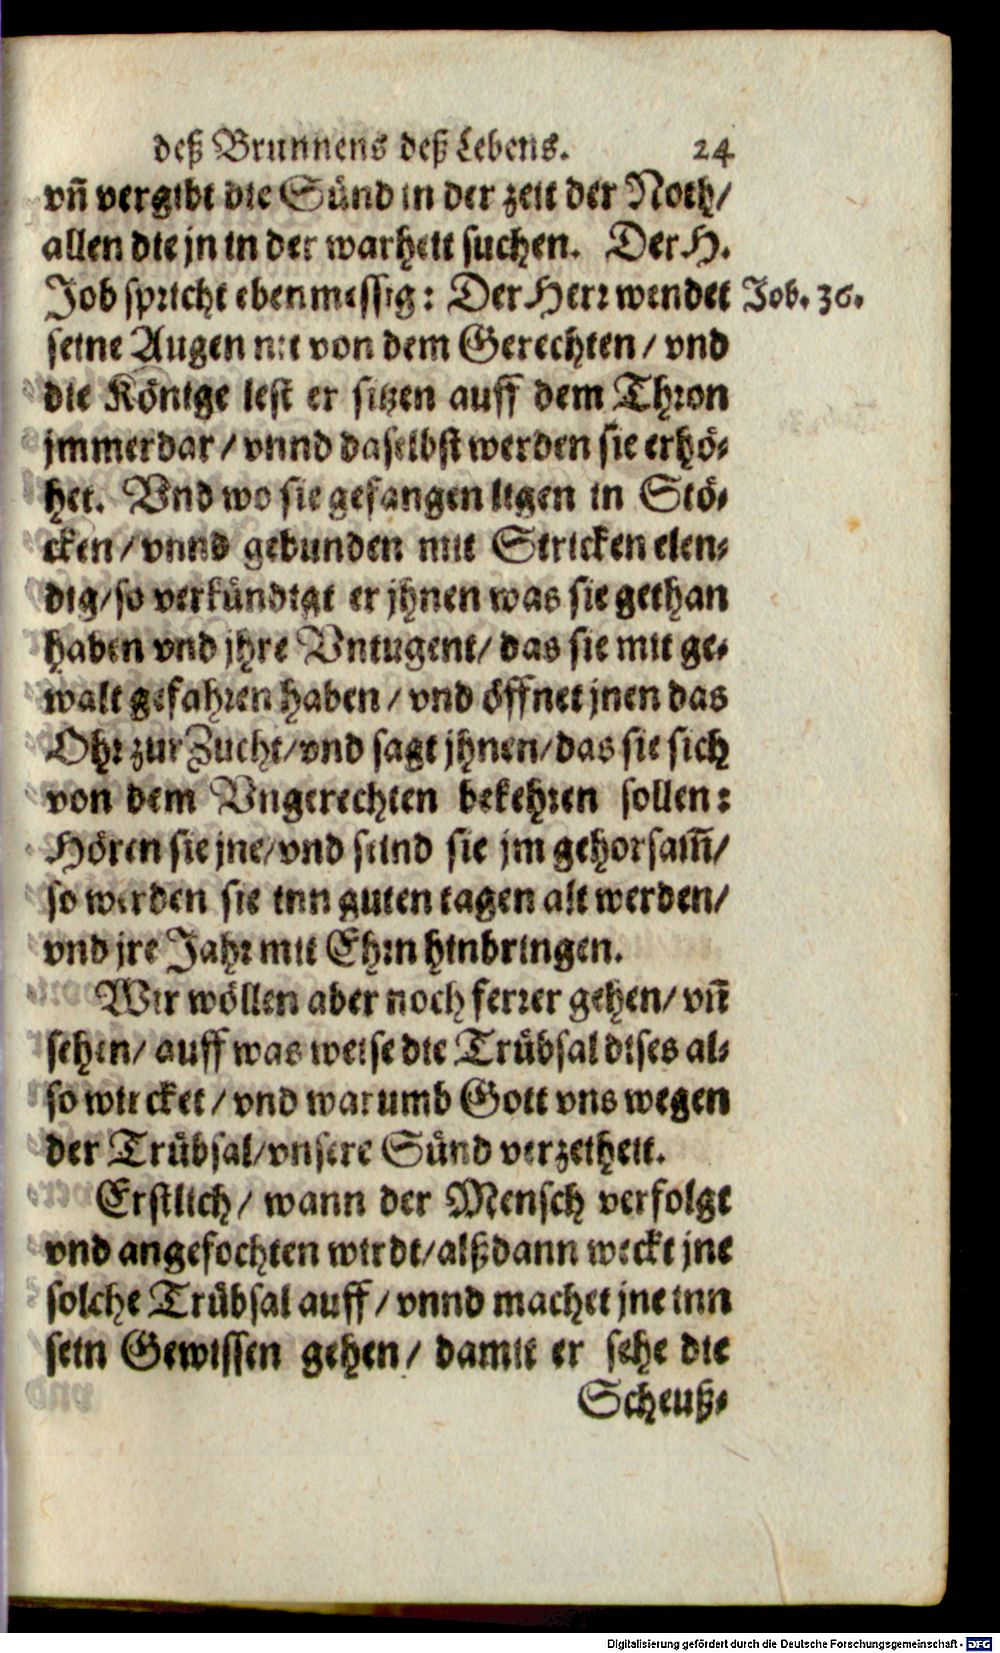 deß Brunnens deß Lebens. 24
vn̄ vergibt die Sünd in der zeit der Noth/
allen die jn in der warheit suchen. Der H.
Job spricht ebenmessig: Der Herr wendet Job. 36.
seine Augen nit von dem Gerechten/ vnd
die Könige lest er sitzen auff dem Thron
jmmerdar/ vnnd daselbst werden sie erhö-
het. Vnd wo sie gefangen ligen in Stö-
cken/ vnnd gebunden mit Stricken elen-
dig/ so verkündigt er jhnen was sie gethan
haben vnd jhre Vntugent/ das sie mit ge-
walt gefahren haben/ vnd öffnet jnen das
Ohr zur Zucht/ vnd sagt jhnen/ das sie sich
von dem Vngerechten bekehren sollen:
Hören sie jne/ vnd seind sie jm gehorsam̄/
so werden sie inn guten tagen alt werden/
vnd jre Jahr mit Ehrn hinbringen.
Wir wöllen aber noch ferrer gehen/ vn̄
sehen/ auff was weise die Trübsal dises al-
so wircket/ vnd warumb Gott vns wegen
der Trübsal/ vnsere Sünd verzeiheit.
Erstlich/ wann der Mensch verfolgt
vnd angefochten wirdt/ alßdann weckt jne
solche Trübsal auff/ vnnd machet jne inn
sein Gewissen gehen/ damit er sehe die
Scheuß-
Digitalisierung gefördert durch die Deutsche Forschungsgemeinschaft - DFG